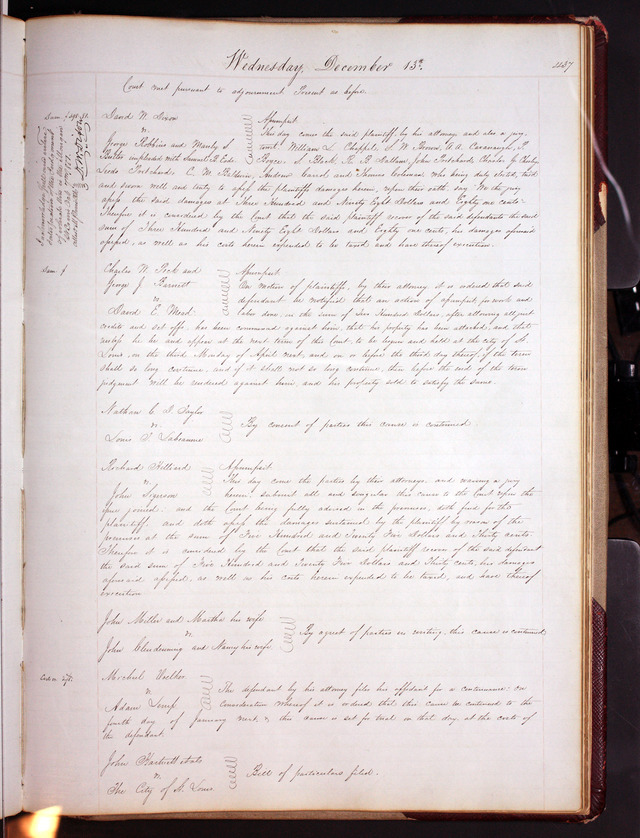 Wednesday, December 13th
437
Court met pursuant to adjournment Present as before.
David W. Dixon
vs.
George Robbins and Manly S.
Butler impleaded with Samuel B.
Assumpsit
This day came the said plaintiff, by his attorney and also a jury,
to wit, William L. Chappel, S. W. A. A. Cavanaugh, P.
Boyce, S. Block, R. B. Dallam, John Pritchard, Charles
Pritchard, C. M. Baldwin, Andrew Carrol and Thomas Coleman, who being duly elected, tried
and sworn well and truly to assess the plaintiffs damages herein, upon their oath say "We the jury
assess the said damages at Three Hundred and Ninety Eight Dollars and Eighty one cents."
Therefore it is considered by the Court that the said plaintiff recover of the said defendants the said
sum of Three Hundred and Ninety Eight Dollars and Eighty one cents, his damages aforesaid
assessed, as well as his costs herein expended to be taxed and have thereof execution.
Charles W. Peck and
George J. Barnett
vs.
David E. Wood
Assumpsit
On motion of plaintiffs, by their attorney it is ordered that said
defendant be notified that an action of assumpsit for work and
labor done, in the sum of Two Hundred Dollars, after allowing all just
credits and set offs, has been commenced against him, that his property has been attached, and that
unless he be and appear at the next term of this Court, to be begun and held at the city of St.
Louis, on the third Monday of April next, and on or before the third day thereof if the term
shall so long continue, and if it shall not so long continue, then before the end of the term
judgment will be rendered against him, and his property sold to satisfy the same.
Nathan C. D. Taylor
vs.
Louis T. Labeaume
By consent of parties this cause is continued
Richard Hilliard
vs.
John Sigerson
Assumpsit
This day came the parties by their attorneys and waiving a jury
herein, submit all and singular this cause to the Court upon the
issue joined, and the Court being fully advised in the premises, doth find for the
plaintiff, and doth assess the damages sustained by the plaintiff by reason of the
premises at the sum of Five Hundred and Twenty Five Dollars and Thirty cents.
Therefore it is considered by the Court that the said plaintiff recover of the said defendant
the said sum of Five Hundred and Twenty Five Dollars and Thirty cents, his damages
aforesaid assessed, as well as his costs herein expended to be taxed, and have thereof
execution
John Miller and Martha his wife
vs.
John Clendenning and Nancy his wife
By agreet of parties in writing, this cause is continued
Michael Walther
vs.
Adam Lemp
The defendant by his attorney files his affidavit for a continuance; on
Consideration whereof it is ordered that this cause be continued to the
fourth day of January next, & this cause is set for trial on that day, at the costs of
the defendant.
John
vs.
The City of St. Louis
Bill of particulars filed.